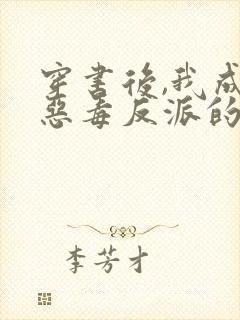 穿書後,我成
惡毒反派的
李芳才